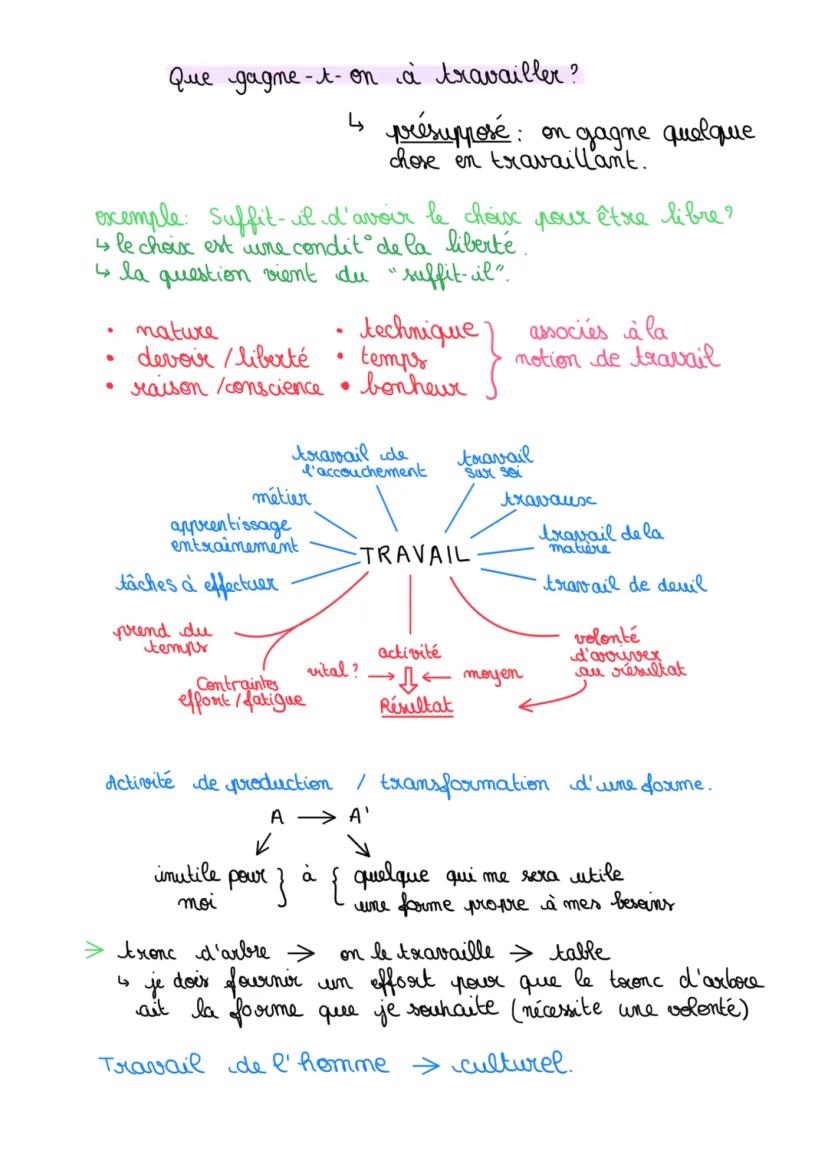 Que gagne-t-on à travailler ?
↳ présupposé : on gagne quelque
chose en travaillant.
exemple: Suffit-il d'avoir le choix pour être libre ?
↳ le choix est une condit° de la liberté.
↳ la question vient du "suffit-il".
• nature • technique } associés à la
• devoir / liberté • temps notion de travail
• raison / conscience • bonheur
travail de travail
l'accouchement sur soi
métier travaux
apprentissage travail de la
entraînement matière
TRAVAIL
tâches à effectuer travail de deuil
prend du volonté
temps d'arriver
activité au résultat
vital ? → ⇩ ← moyen
Contraintes
effort / fatigue Résultat
Activité de production / transformation d'une forme.
A → A'
inutile pour } à { quelque qui me sera utile
moi une forme propre à mes besoins
→ tronc d'arbre → on le travaille → table
↳ je dois fournir un effort pour que le tronc d'arbre
ait la forme que je souhaite (nécessite une volonté)
Travail de l'homme → culturel.